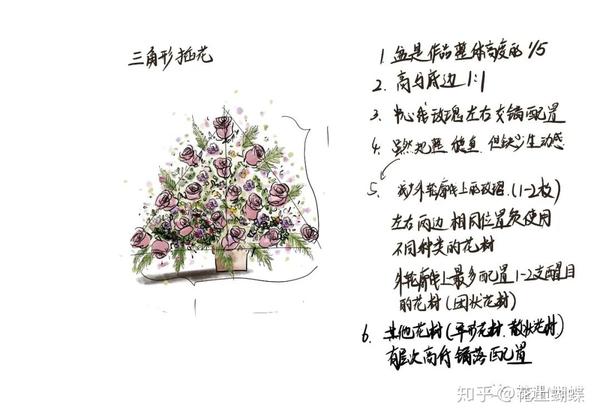 三角形插花
1. 盆是作品整体高度的 1/5
2. 高与底边 1:1
3. 中心线玫瑰左右交错配置
4. 虽然规整 稳重 但缺少生动感
5. 减少外轮廓线上的玫瑰. (1-2枝)
左右两边相同位置避免使用
不同种类的花材
外轮廓线上最多配置1-2支醒目
的花材(团状花材)
6. 其他花材(异形花材. 散状花材)
有层次高低错落配置
知乎 @花里蝴蝶